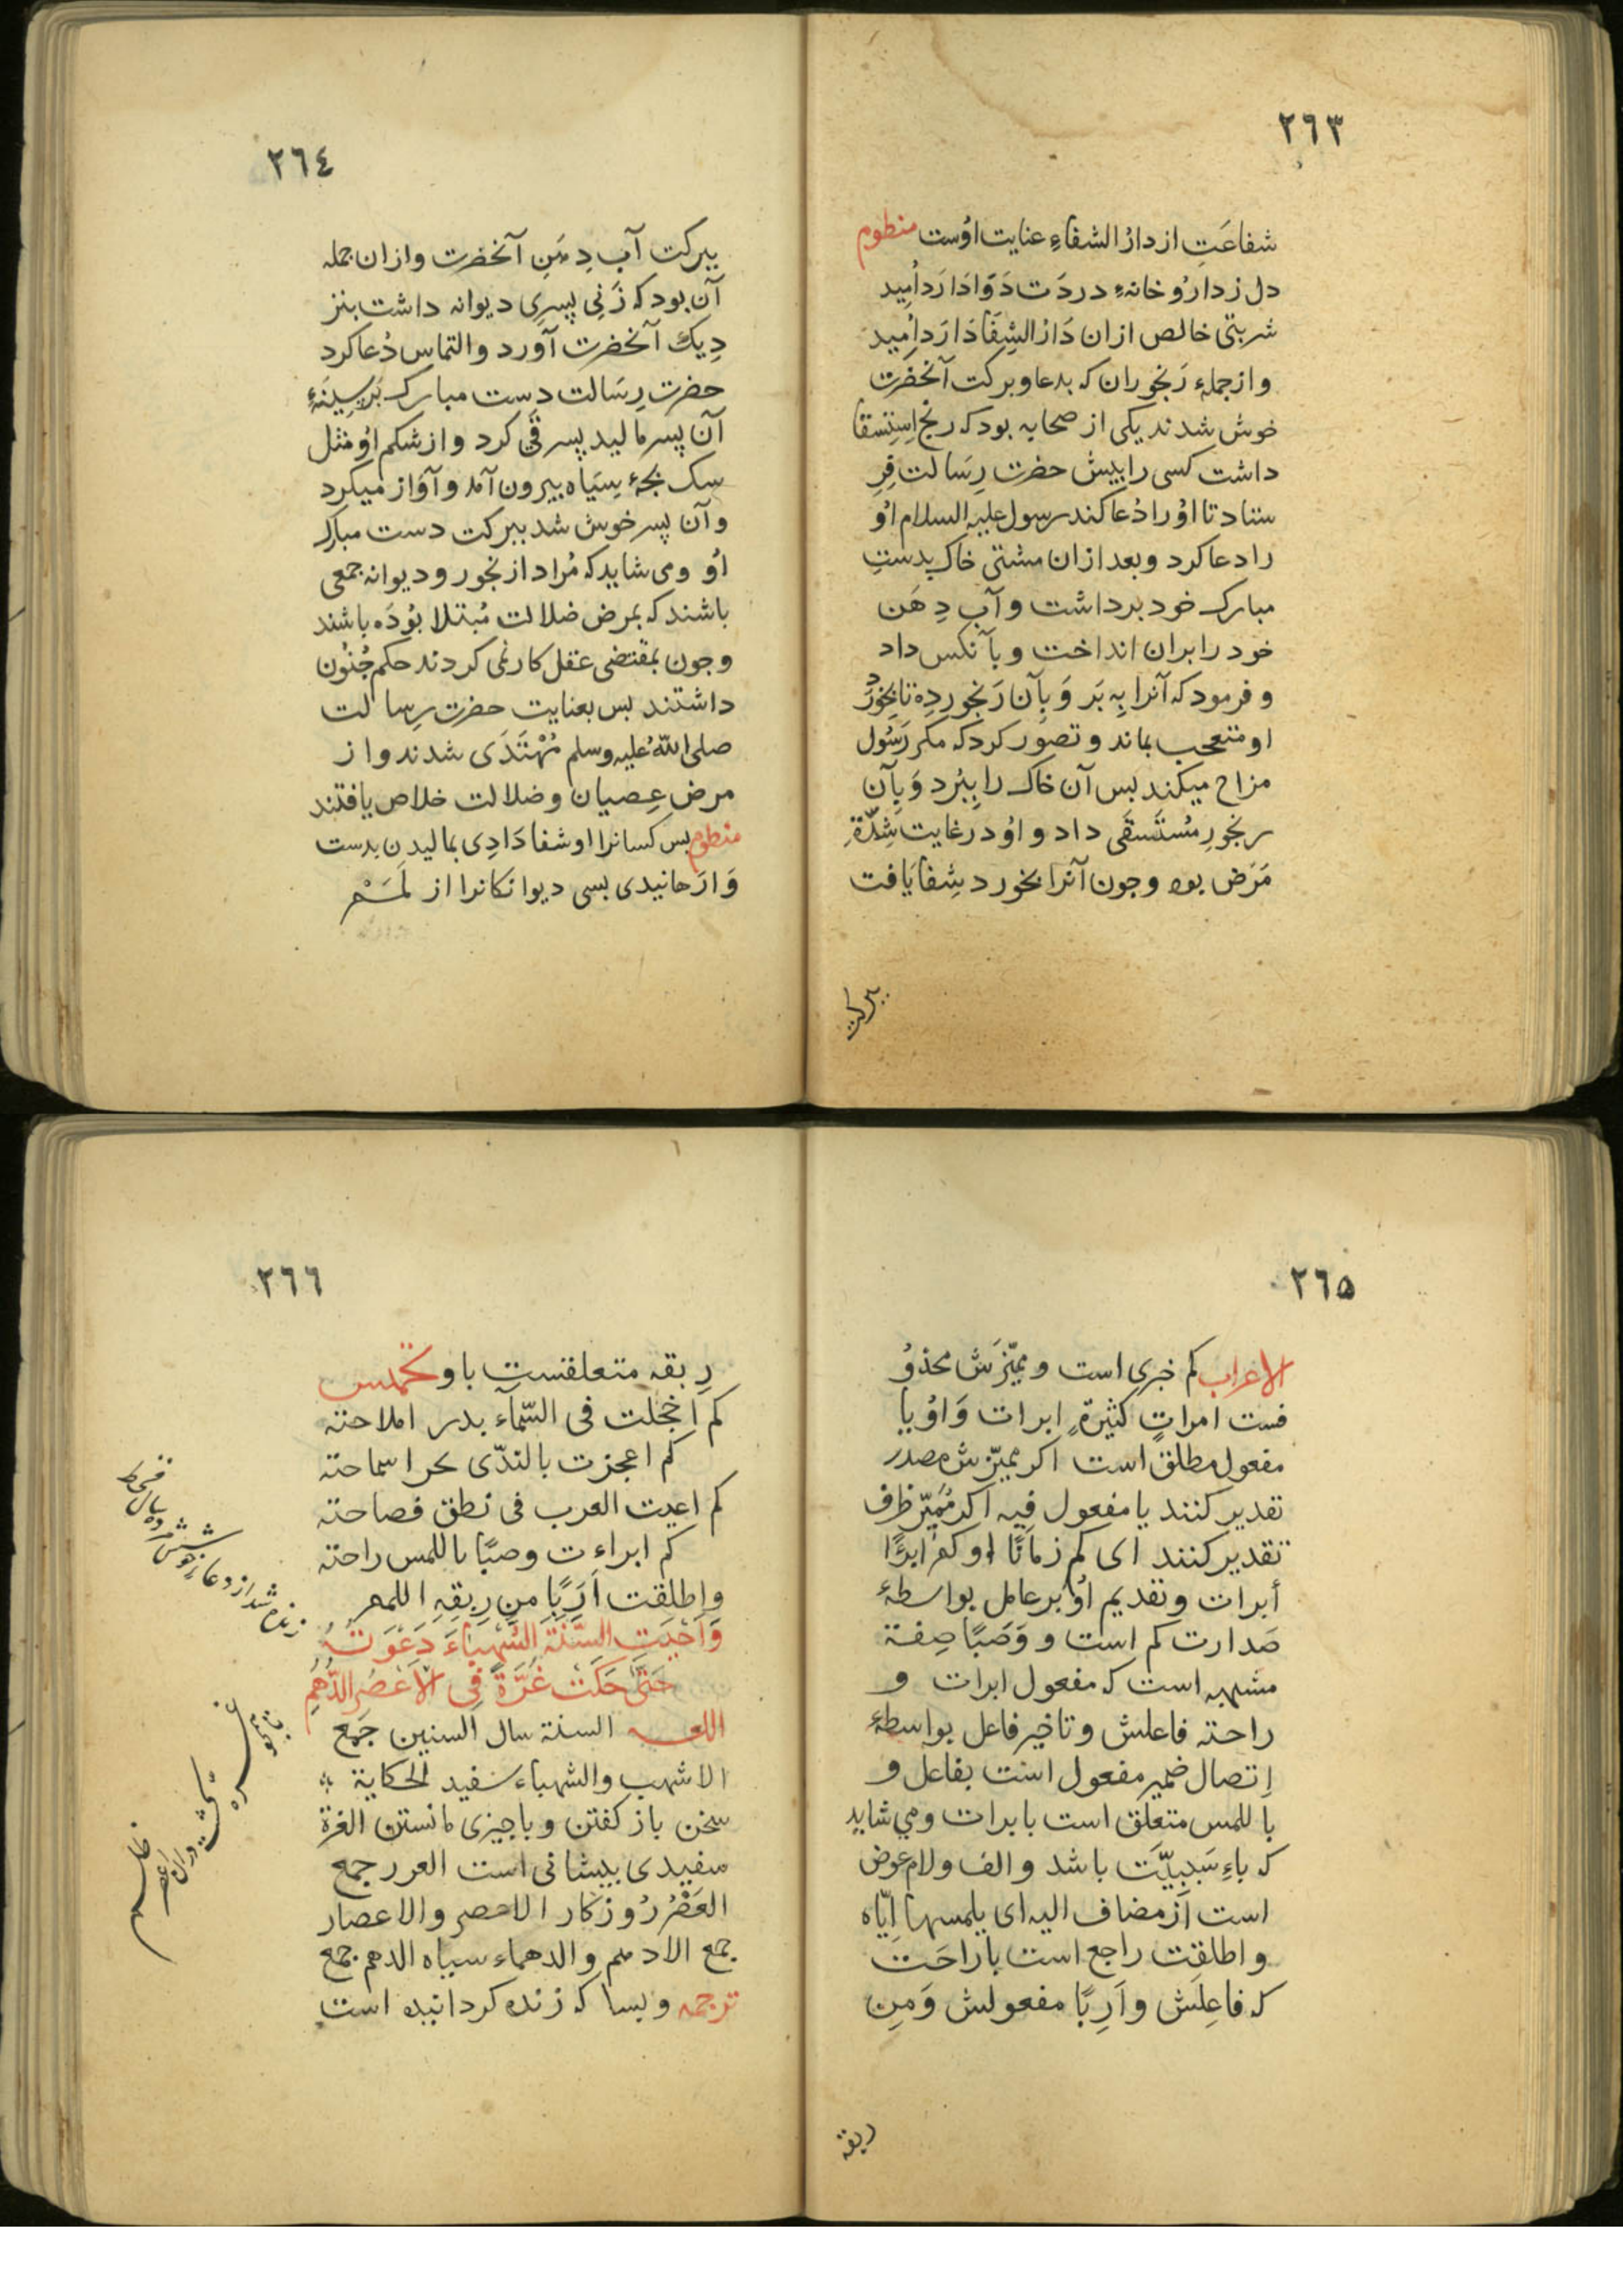 ٢٦٣
شفاعَتِ از دارُ الشفاءِ عنایت اوُست منظوم
دل ز دارُو خانهءِ دردَت دَوَا دَارَد اُمِید
شربتی خالص ازان دَارُ الشِفَا دَارَد اُمِید
و از جملهء رَنجوران که بدعا و برکت آنحَضرَت
خوش شدند یکی از صحابه بود که رنج اِستِسقا
داشت کسی را بپیش حضرت رِسَالت فِرِ
ستاد تا اوُرا دُعا کند رسول علیه السلام اوُ
را دعا کرد و بعد ازان مشتی خاک بدستِ
مبارک خود برداشت و آب دِهَن
خود را بران انداخت و بآنکس داد
و فرمود که آنرا بِه بَر وَ بِآن رَنجور دِه تا بخورَد
او متعجب بماند و تصور کرد که مکر رَسُول
مزاح میکند بس آن خاک را بِبُرد وَ بِآن
رنجورِ مُستَسقَی داد و اوُ در غایت شِدّة
مَرَض بود و جون آنرا بخورد شِفا یَافت
ببرکت
٢٦٤
ببرکت آب دِهَنِ آنحضرت و ازان جمله
آن بود که زَنِی پسرِی دیوانه داشت بنز
دِیك آنحضرت آورد و التماس دُعا کرد
حضرت رِسَالت دست مبارک بَر سِینَهءِ
آن پسر مالید پسر قی کرد و از شکم اوُ مثل
سک بجهٔ سِیَاه بیرون آمد و آوَاز میکرد
و آن پسر خوش شد ببرکت دست مبارک
اوُ و می شاید که مُراد از نجور و دیوانه جمعی
باشند که بمرض ضلالت مُبتلا بوُدَه باشند
و جون بمقتضی عقل کار نمی کردند حکم جُنوُن
داشتند بس بعنایت حضرت رِسالت
صلی اللّه علیه وسلم مُهْتَدَی شدند و از
مرض عِصیان و ضلالت خلاص یافتند
منظوم بس کسانرا او شفا دَادِی بمالیدن بدست
وَارَهانیدی بسی دیوانکانرا از لَمَمْ
٢٦٥
الاعراب کم خبری است و ممیّزَش محذوُ
فست امراتٍ کثیرةٍ ابرات وَ اوُ یا
مفعول مطلق است اکر ممیّزش مصدر
تقدیر کنند یا مفعول فیه اکر مُمَیّز ظرف
تقدیر کنند ای کم زمانًا او کم ابرًا
أبرات و تقدیم اوُ بر عامل بواسطهٔ
صَدارت کم است و وَصَبًا صِفة
مشبهه است که مفعول ابرات و
راحته فاعلش و تاخیر فاعل بواسطهٔ
اِتصال ضمیر مفعول است بفاعل و
باللمس متعلق است بابرات و می شاید
که باءِ سَبَبِیَّت باشد و الف و لام عوض
است از مضاف الیه ای بلمسها ایّاه
و اطلقت راجع است باراحَت
که فاعِلَش و اَرِبًا مفعولش وَ مِن
ربقه
٢٦٦
رِبقه متعلقست باو تخمیس
کم اخجلت فی السّماء بدرا ملاحته
کم اعجزت بالندّی بحرا سماحته
کم اعیت العرب فی نطق فصاحته
کم ابراءت وصبًا باللمس راحته
و اطلقت اَرِبًا مِن رِبقِهِ اللمم
وَاَحْیَتِ السَّنَةَ الشَّهْبَاءَ دَعْوَتُهُ
حَتَّی حَکَتْ غُرَّةً فِی الاَعْصُرِ الدُّهُمِ
اللغـه السنة سال السنین جَمع
الاشهب والشهباء سفید الحکایة
سخن باز کفتن و باجیزی مانستن الغرة
سفیدی بیشانی است الغرر جمع
العَصْرُ رُوزکار الاعصر والاعصار
جمع الادهم و الدهماء سیاه الدهم جمع
ترجمه و بسا که زنده کردانیده است
زنده شد از دعاء جوشش مرده سال قحط